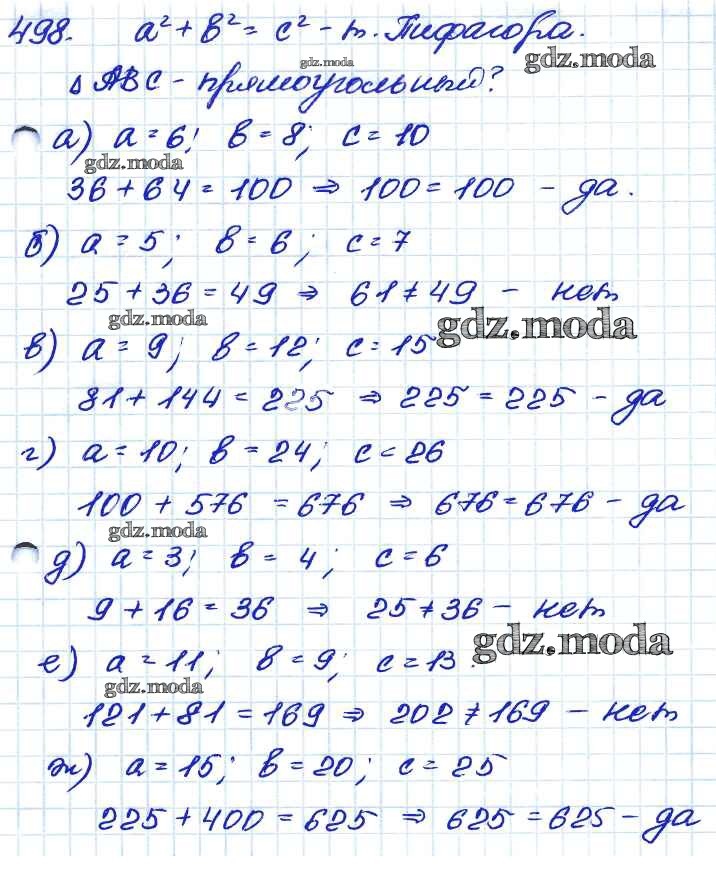 498. a² + b² = c² - т. Пифагора.
gdz.moda
gdz.moda
Δ ABC - прямоугольный?
а) a = 6; b = 8; c = 10
gdz.moda
36 + 64 = 100 ⇒ 100 = 100 - да.
б) a = 5; b = 6; c = 7
25 + 36 = 49 ⇒ 61 ≠ 49 - нет
gdz.moda
gdz.moda
в) a = 9; b = 12; c = 15
81 + 144 = 225 ⇒ 225 = 225 - да
г) a = 10; b = 24; c = 26
100 + 576 = 676 ⇒ 676 = 676 - да
gdz.moda
д) a = 3; b = 4; c = 6
9 + 16 = 36 ⇒ 25 ≠ 36 - нет
gdz.moda
е) a = 11; b = 9; c = 13.
gdz.moda
121 + 81 = 169 ⇒ 202 ≠ 169 - нет
ж) a = 15; b = 20; c = 25
225 + 400 = 625 ⇒ 625 = 625 - да